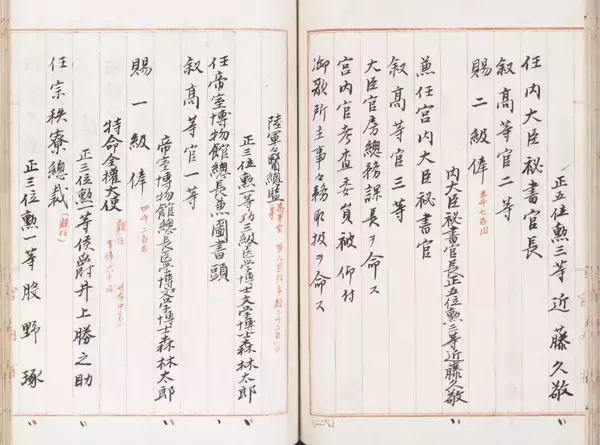 正五位勲三等近藤久敬
任内大臣秘書官長
叙高等官二等
賜二級俸
内大臣秘書官長正五位勲三等近藤久敬
兼任宮内大臣秘書官
叙高等官三等
大臣官房総務課長ヲ命ス
宮内官考査委員被仰付
御歌所主事々務取扱ヲ命ス
陸軍々醫総監
正三位勲一等功三級医学博士文学博士森林太郎
任帝室博物館總長兼圖書頭
叙高等官一等
帝室博物館總長医学博士文学博士森林太郎
賜一級俸
特命全権大使
正三位勲一等侯爵井上勝之助
任宗秩寮總裁
(親任)
正三位勲一等股野琢